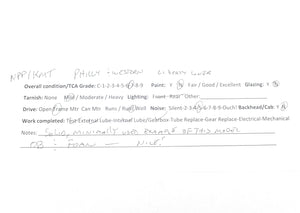 NPP/KMT PHILLY - WESTERN
Overall condition/TCA Grade: C-1-2-3-4-5-6-7-8-9 Paint: Y N Fair / Good / Excellent Glazing: Y N
Tarnish: None Mild / Moderate / Heavy Lighting: Front Rear Other:
Drive: Open Frame Mtr Can Mtr Runs / Runs Well Noise: Silent-2-3-4-5-6-7-8-9-Ouch! Backhead/Cab: Y N
Work completed: Tho External Lube-Internal Lube/Gearbox-Tube Replace-Gear Replace-Electrical-Mechanical
Notes: SOLID, MINIMALLY USED EXAMPLE OF THIS MODEL
OB: FOAM - NICE!